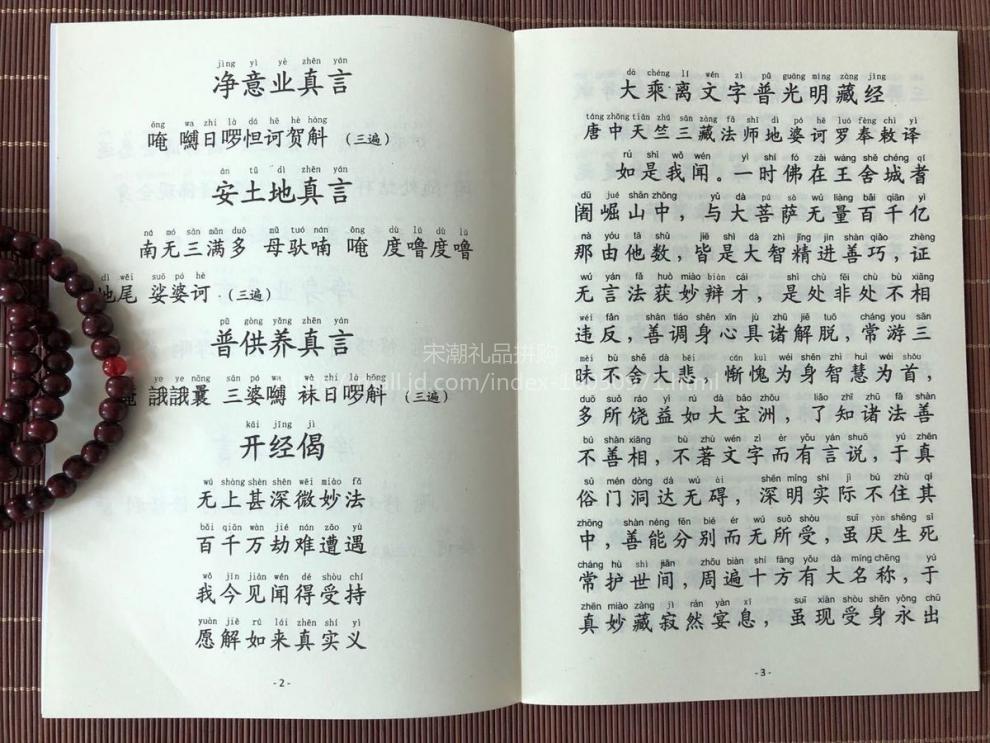 jìng yì yè zhēn yán
净意业真言
ōng wa zhì là dá hē hè hòng
唵 嚩日啰怛诃贺斛 （三遍）
ān tǔ dì zhēn yán
安土地真言
ná mó sān mǎn duō mǔ tuó nán ōng dù lū dù lū
南无三满多 母驮喃 唵 度噜度噜
dì wěi suō pó hē
地尾 娑婆诃（三遍）
pǔ gòng yǎng zhēn yán
普供养真言
ye ye nāng sān pó wa wà zhī lā hōng
唵 誐誐曩 三婆嚩 袜日啰斛 （三遍）
kāi jīng jì
开经偈
wú shàng shèn shēn wēi miào fǎ
无上甚深微妙法
bǎi qiān wàn jié nán zāo yù
百千万劫难遭遇
wǒ jīn jiàn wén dé shòu chí
我今见闻得受持
yuàn jiě rú lái zhēn shí yì
愿解如来真实义
- 2 -
dà chéng lí wén zì pǔ guāng míng zàng jīng
大乘离文字普光明藏经
táng zhōng tiān zhú sān zàng fǎ shī dì pó hē luó fèng chì yì
唐中天竺三藏法师地婆诃罗奉敕译
rú shì wǒ wén yì shí fó zài wáng shě chéng qí
如是我闻。一时佛在王舍城耆
dū jué shān zhōng yǔ dà pú sà wú liàng bǎi qiān yì
阇崛山中，与大菩萨无量百千亿
nà yóu tā shù jiē shì dà zhì jīng jìn shàn qiǎo zhèng
那由他数，皆是大智精进善巧，证
wú yán fǎ huò miào biàn cái shì chù fēi chù bù xiāng
无言法获妙辩才，是处非处不相
wéi fǎn shàn tiáo shēn xīn jù zhū jiě tuō cháng yóu sān
违反，善调身心具诸解脱，常游三
mèi bù shě dà bēi cán kuì wéi shēn zhì huì wéi shǒu
昧不舍大悲，惭愧为身智慧为首，
duō suǒ ráo yì rú dà bǎo zhōu liǎo zhī zhū fǎ shàn
多所饶益如大宝洲，了知诸法善
bú shàn xiàng bù zhù wén zì ér yǒu yán shuō yú zhēn
不善相，不著文字而有言说，于真
sú mén dòng dá wú ài shēn míng shí jì bú zhù qí
俗门洞达无碍，深明实际不住其
zhōng shàn néng fēn bié ér wú suǒ shòu suī yàn shēng sǐ
中，善能分别而无所受，虽厌生死
cháng hù shì jiān zhōu biàn shí fāng yǒu dà míng chēng yú
常护世间，周遍十方有大名称，于
zhēn miào zàng jì rán yàn xī suī xiàn shòu shēn yǒng chū
真妙藏寂然宴息，虽现受身永出
- 3 -
宋潮礼品拼购